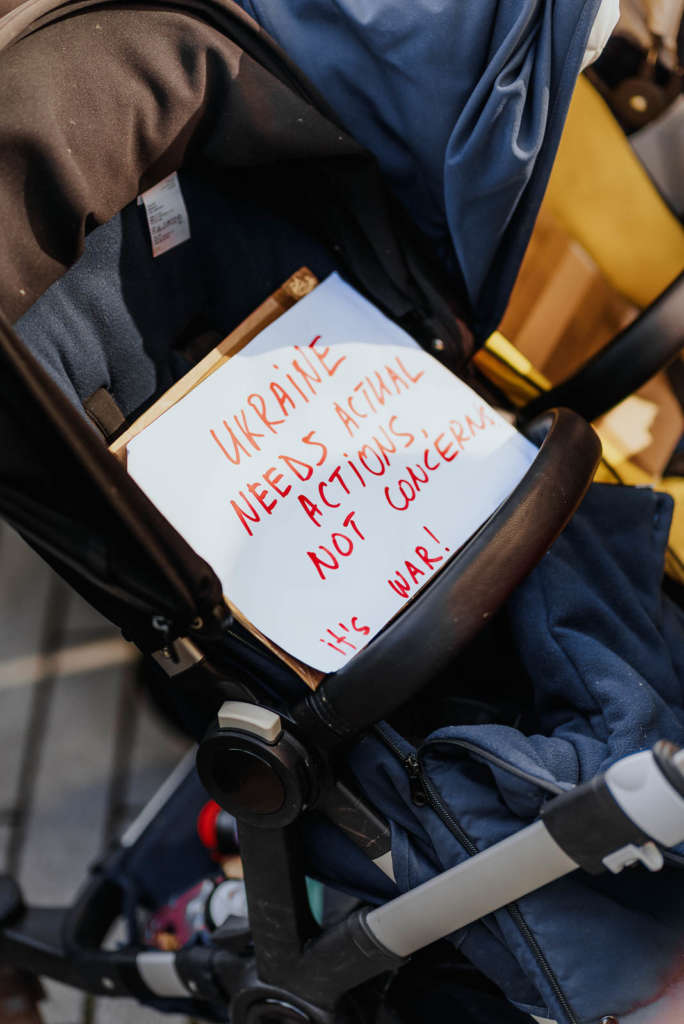 UKRAINE
NEEDS ACTUAL
ACTIONS,
NOT CONCERNS,
it's WAR!